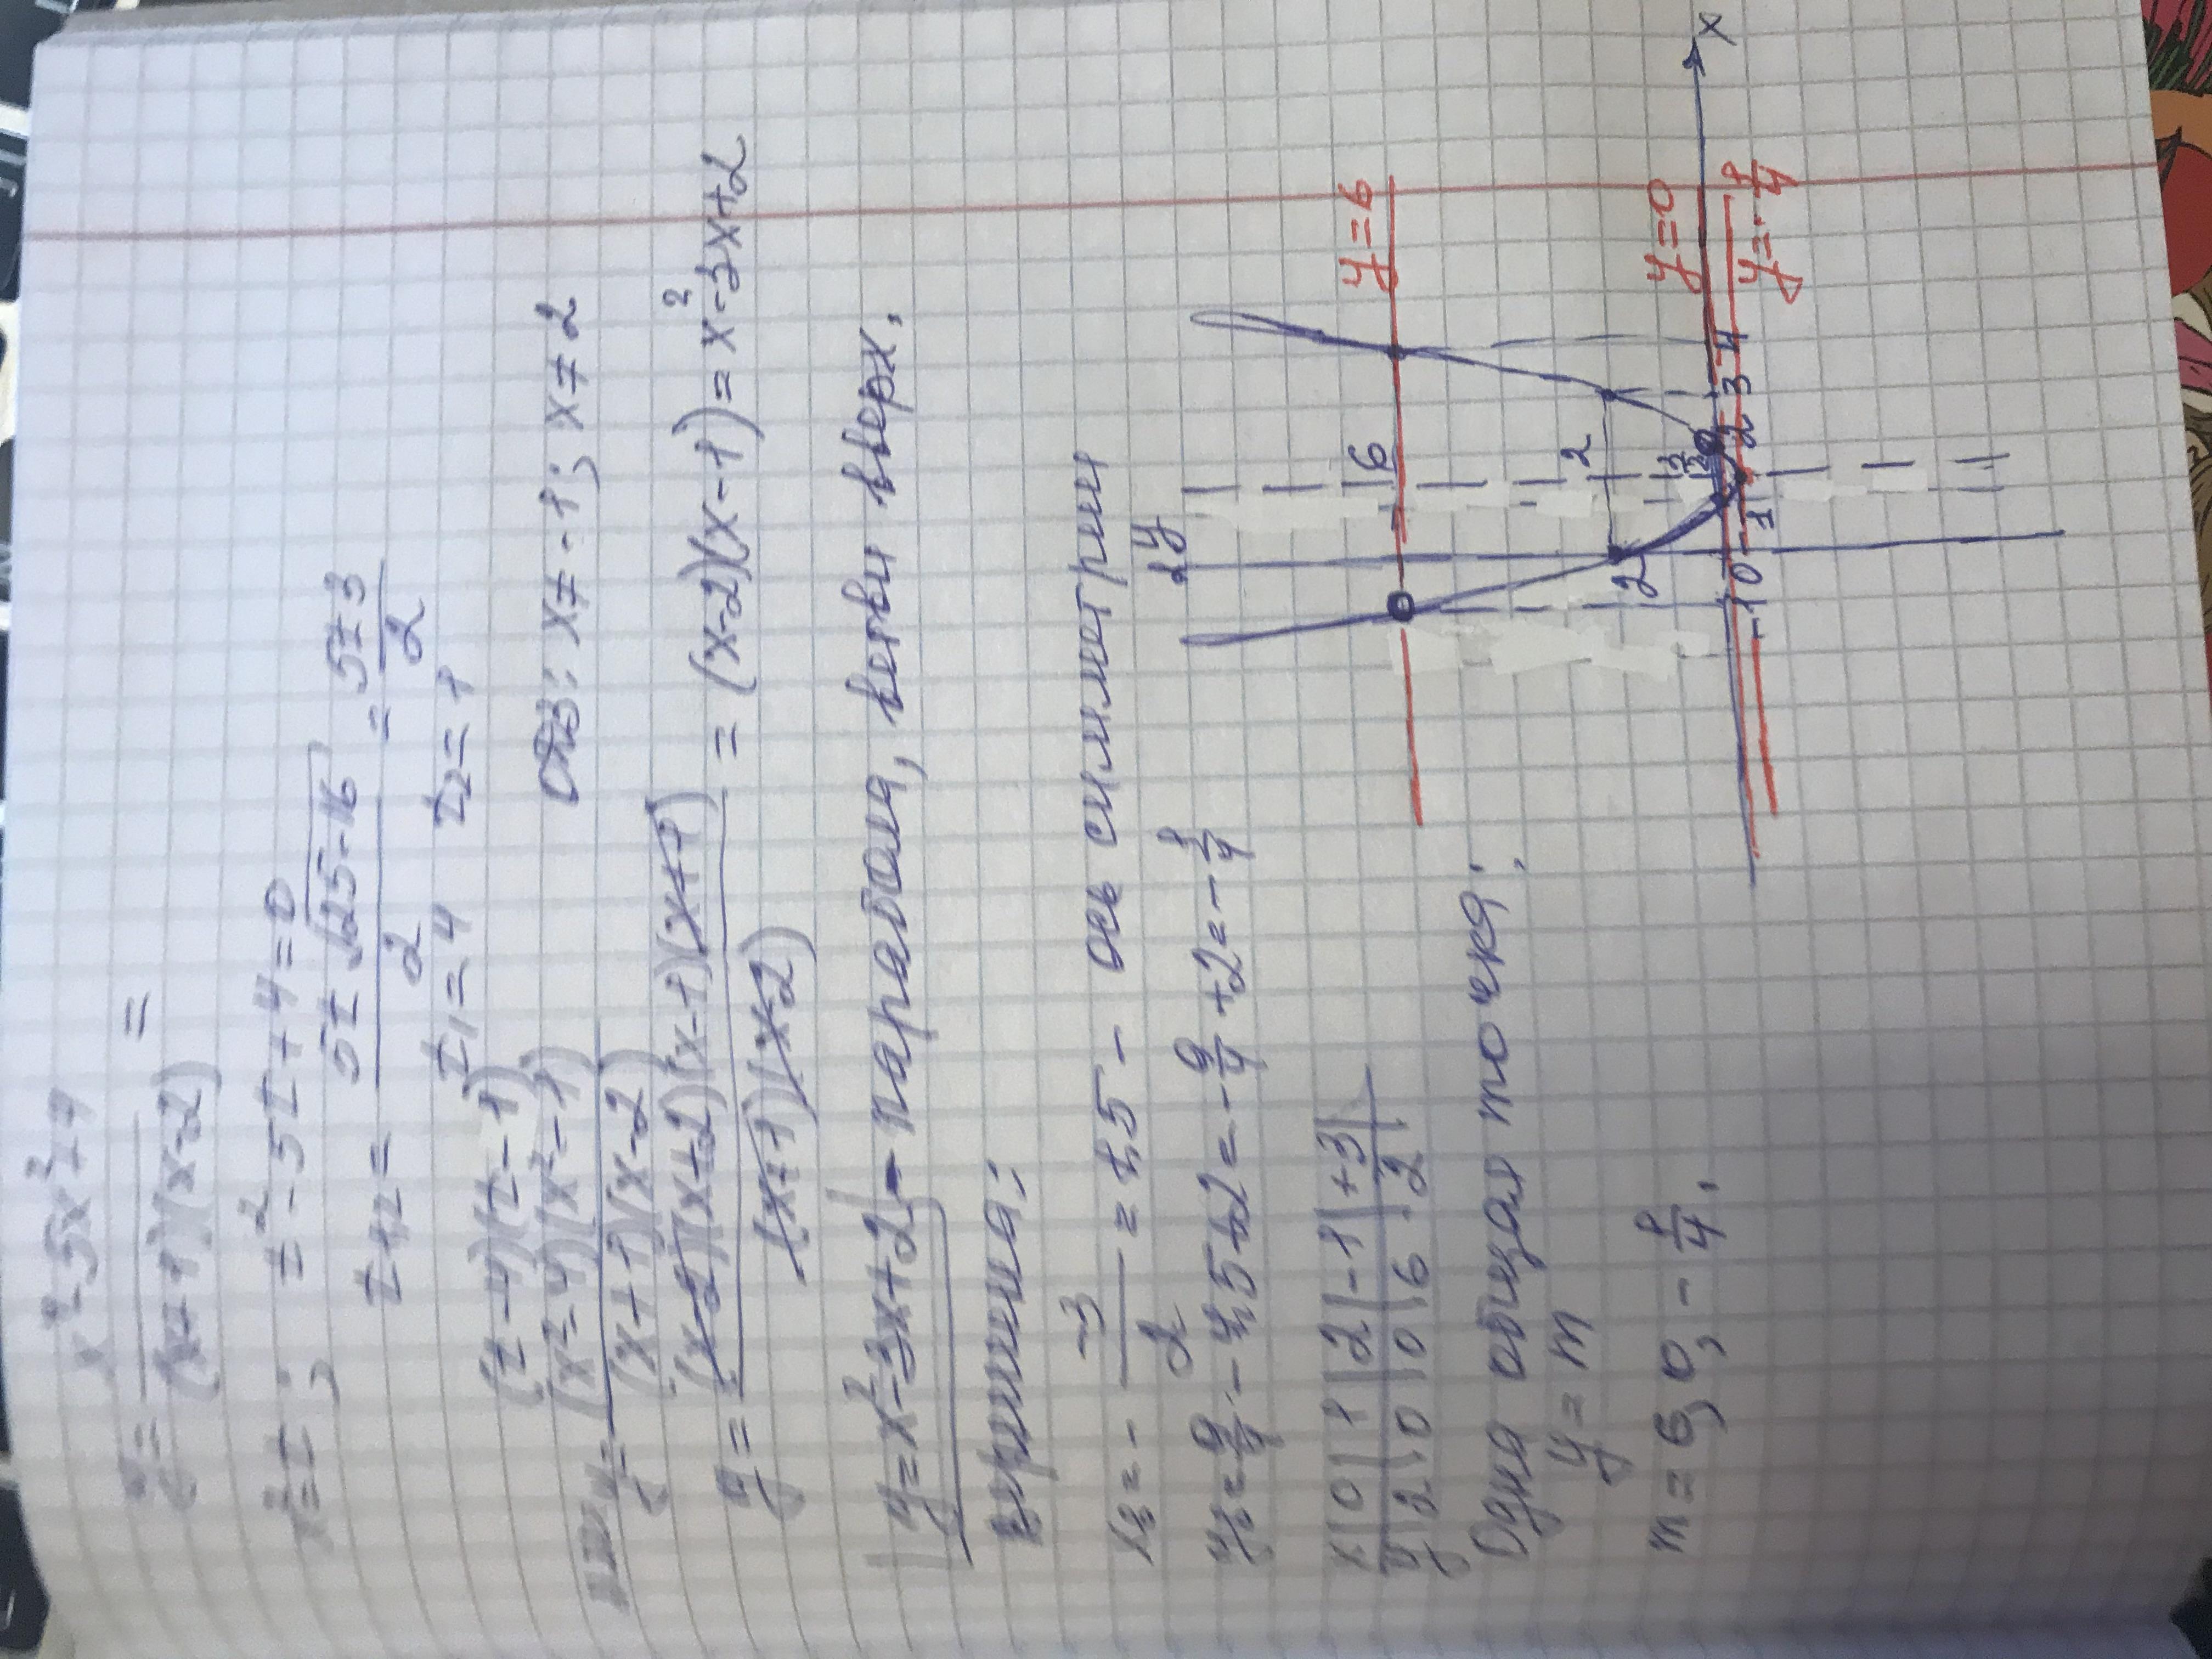 y = x⁴-5x²+4 / (x+1)(x-2) =
x²=t; t²-5t+4=0
t₁,₂ = 5±√25-16 / 2 = 5±3 / 2
t₁=4 t₂=1
(t-4)(t-1)
y = (x²-4)(x²-1) / (x+1)(x-2) ОДЗ: x≠-1; x≠2
y = (x-2)(x+2)(x-1)(x+1) / (x+1)(x-2) = (x-2)(x-1) = x²-3x+2
y=x²-3x+2 - парабола, ветви вверх.
вершина:
x₀ = - -3 / 2 = 1,5 - ось симметрии
y₀ = 9/4 - 4,5+2 = -9/4 +2 = -1/4
x | 0 | 1 | 2 | -1 | +3
y | 2 | 0 | 0 | 6 | 2
Одна общая точка:
y = m
m = 6, 0, -1/4.
y
y=6
6
2
2
3/2
y=0
x
-1 0 1 2 3 4
y=-1/4